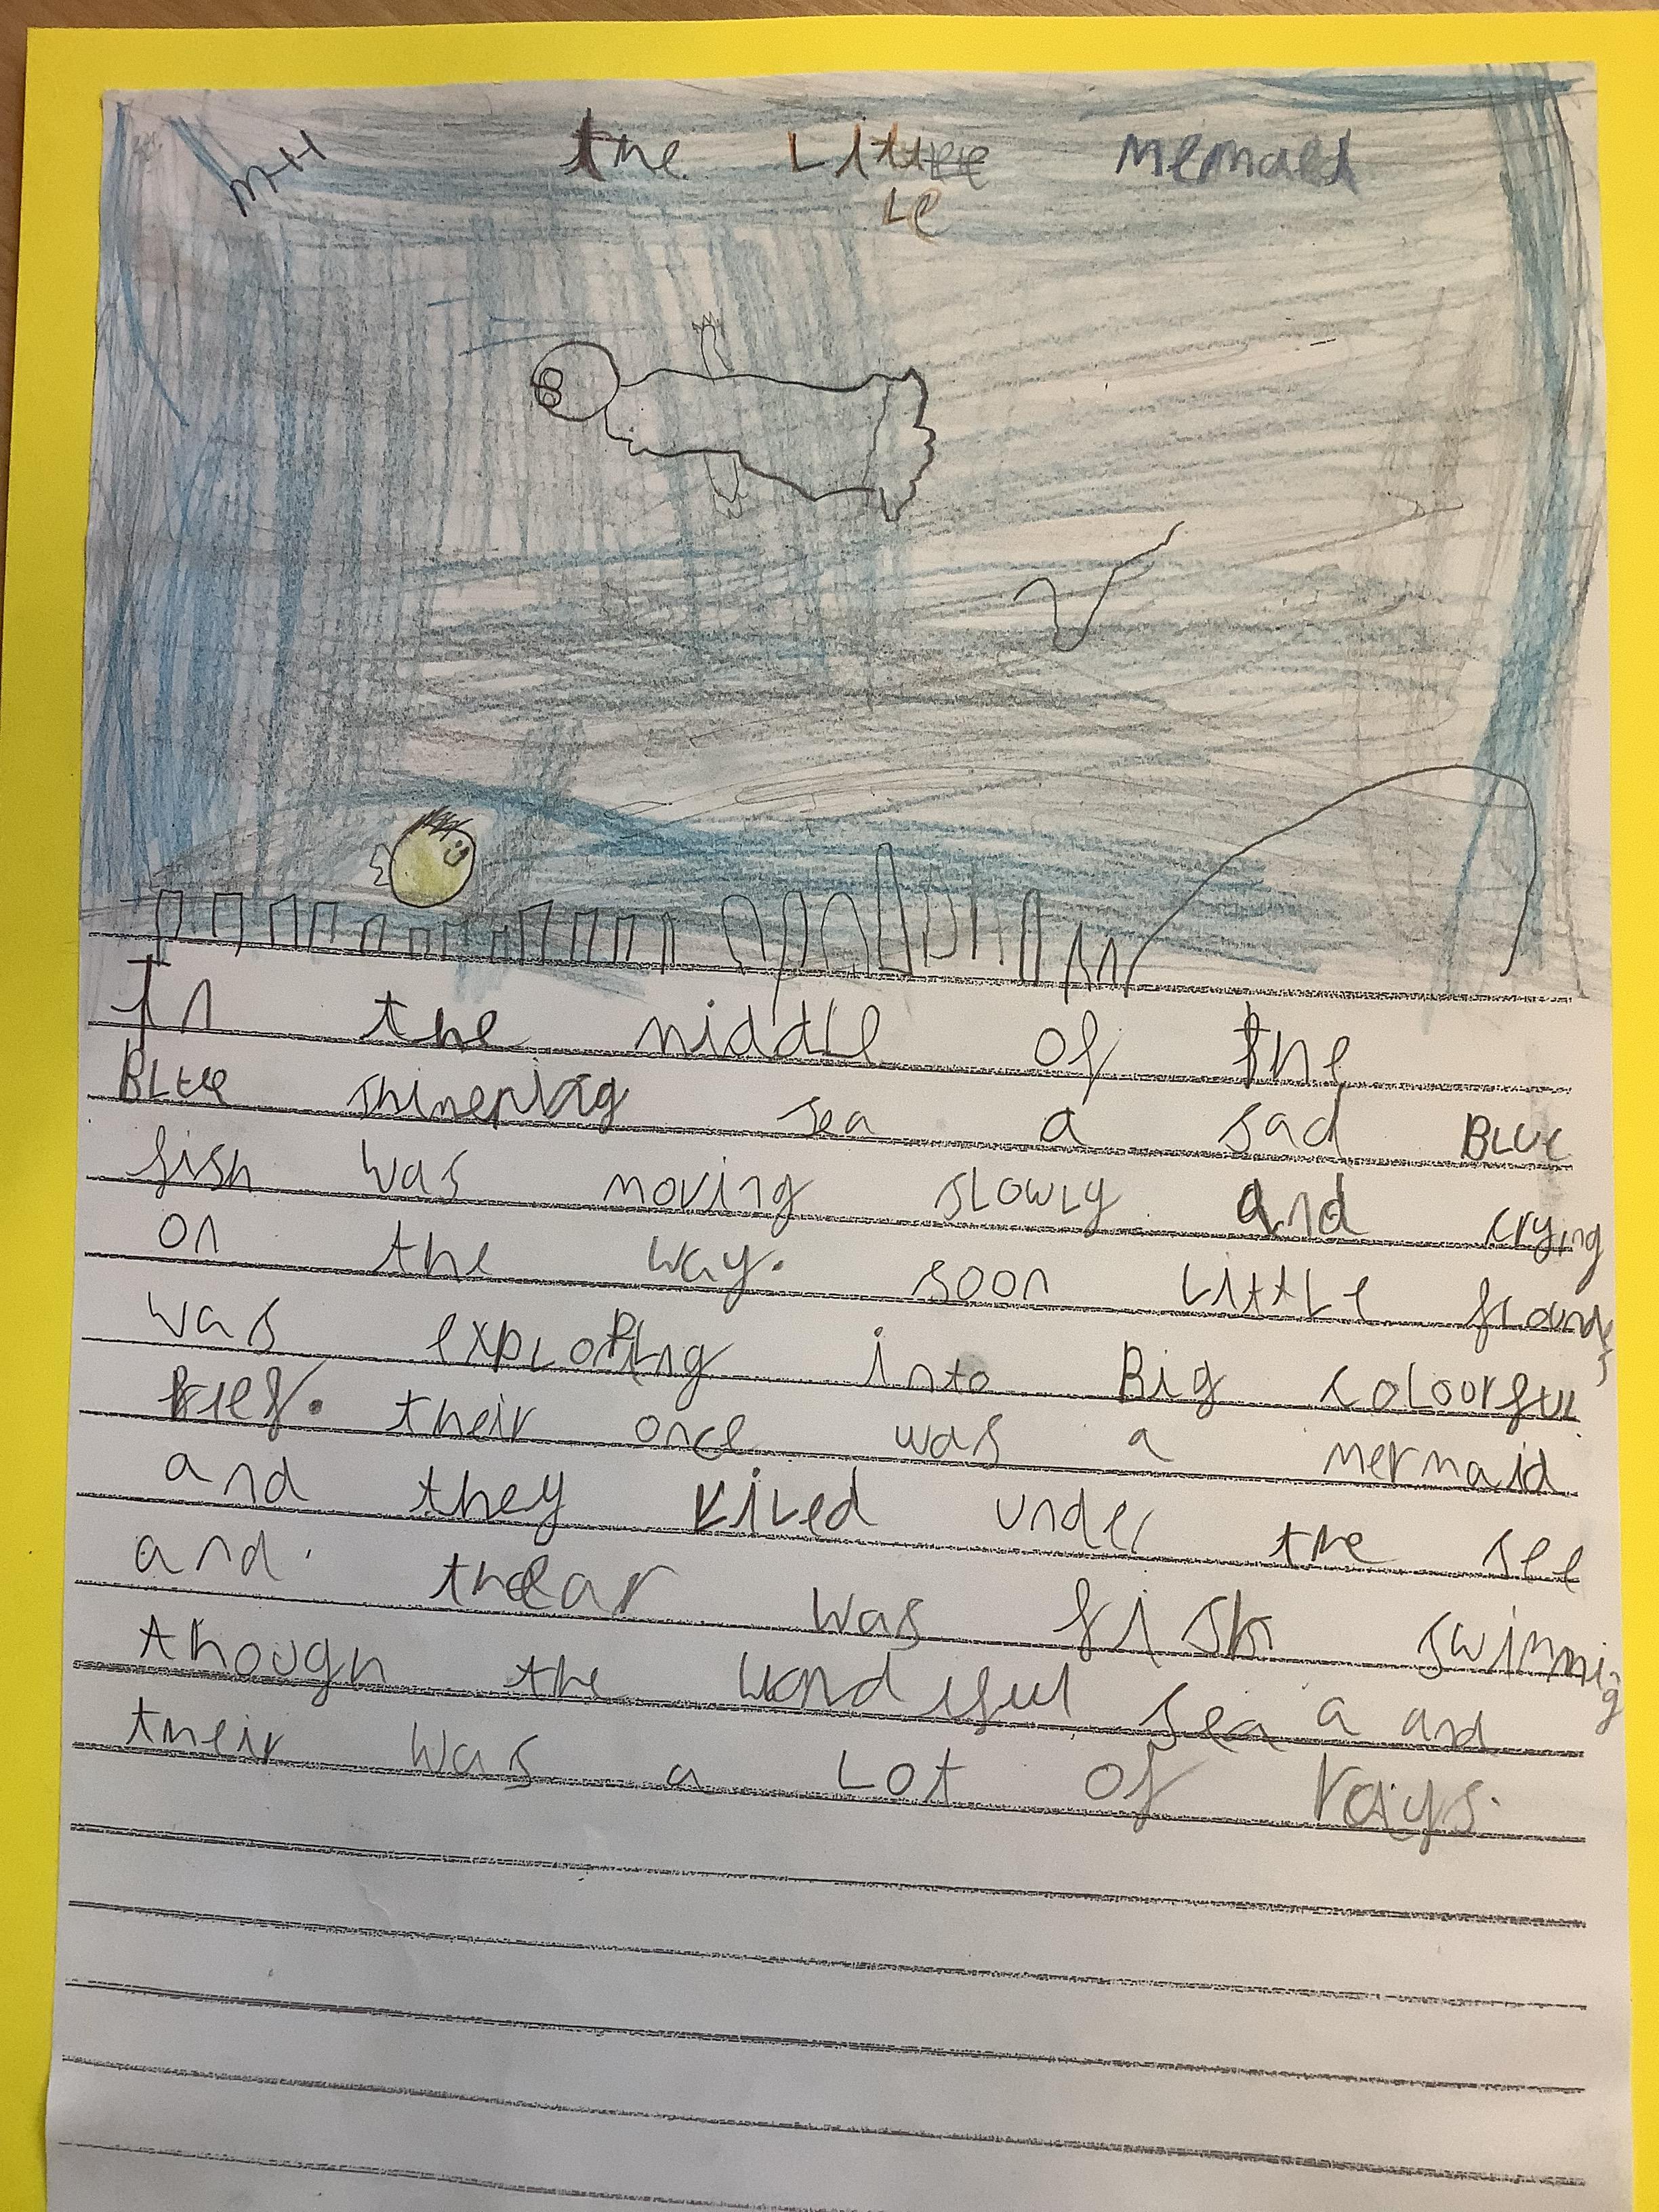 M-H the Little Memaed
In the middle of the
BLue shinering sea a sad BLue
fish was moving sLowLy and crying
on the way. soon LittLe fLounder
was expLoring into Big coLourfuL
reef. their once was a mermaid
and they Lived under the see
and thear was fish swimming
though the wondeful sea a and
their was a Lot of rays.